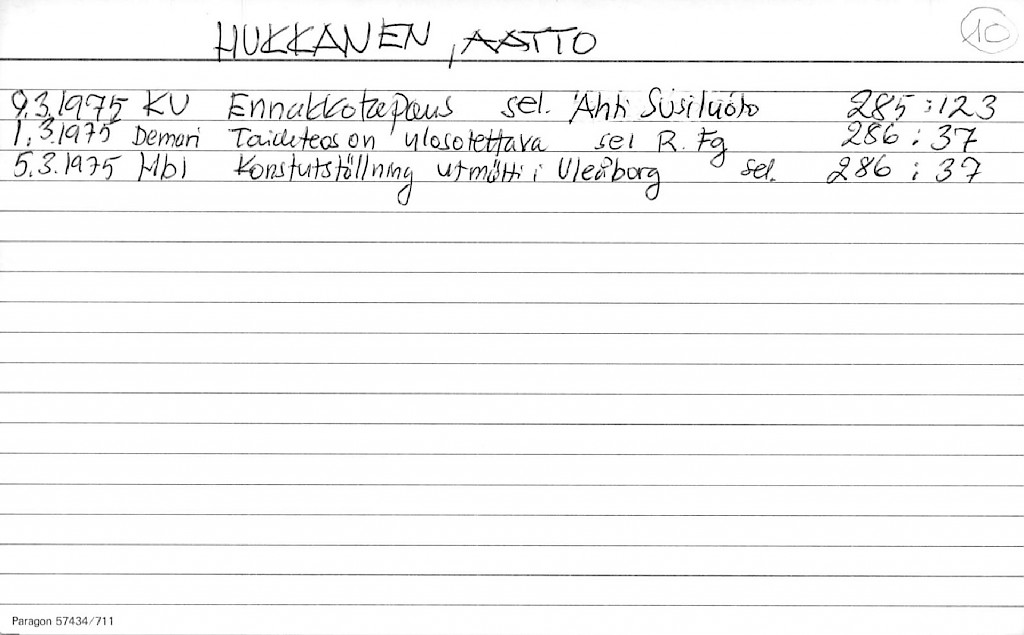 HUKKANEN, AATTO
10
9.3.1975 KU Ennakkotapaus sel. Ahti Susiluoto 285:123
1.3.1975 Demari Taideteos on ulosotettava sel R. Fg 286:37
5.3.1975 Hbl Konstutställning utmätt i Uleåborg sel. 286:37
Paragon 57434/711